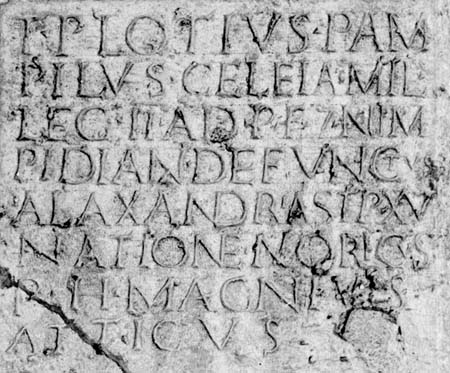 T·PLOTIVS·PAM
PILVS·CELEIA·MIL
LEG·II·AD·P·F·7·NIM
PIDIAN·DEFVNCT
ALAXANDR·A STIP·XV
NATIONE·NORICVS
P·H·MAGNIVS
ATTICVS